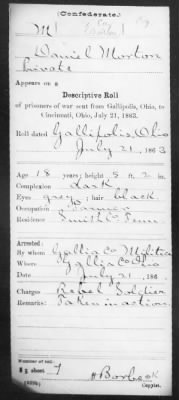 (Confederate.)
M
Daniel Morton
Private
Appears on a
Descriptive Roll
of prisoners of war sent from Gallipolis, Ohio, to
Cincinnati, Ohio, July 21, 1863.
Roll dated Gallipolis, Ohio
July 21, 1863
Age 18 years; height 5 ft. 2 in.
Complexion dark
Eyes grey; hair black
Occupation Farmer
Residence Smith Co Tenn.
Arrested:
By whom Gallia Co Militia
Where Gallia Co Ohio
Date July 21, 186
Charges Rebel Soldier
Remarks: Taken in action.
Number of roll:
sheet 1
Copyist.